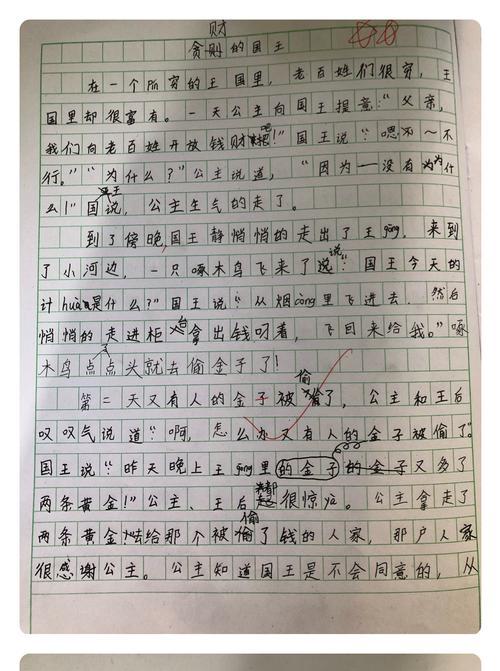 财
贪则的国王
在一个所穷的王国里，老百姓们很穷，王
国里却很富有。一天公主向国王提意：“父亲，
我们向老百姓开放钱财吧！”国王说：“嗯不～不
行。”“为什么？”公主说道，“因为——没有为什
么！”国王说，公主生气的走了。
到了傍晚，国王静悄悄的走出了王gōng，来到
了小河边，一只啄木鸟飞来了说：“国王今天的
计huà是什么？”国王说：“从烟cōng里飞进去，然后
悄悄的走进柜台拿出钱叼着，飞回来给我。”啄
木鸟点点头就去偷金子了！
第二天又有人的金子被偷了，公主和王后
叹叹气说道：“啊，怎么办又有人的金子被偷了。”
国王说：“昨天晚上王gōng里的金子的金子又多了
两条黄金！”公主、王后都很惊yà。公主拿走了
两条黄金去给那个被偷了钱的人家，那户人家
很感谢公主。公主知道国王是不会同意的，从